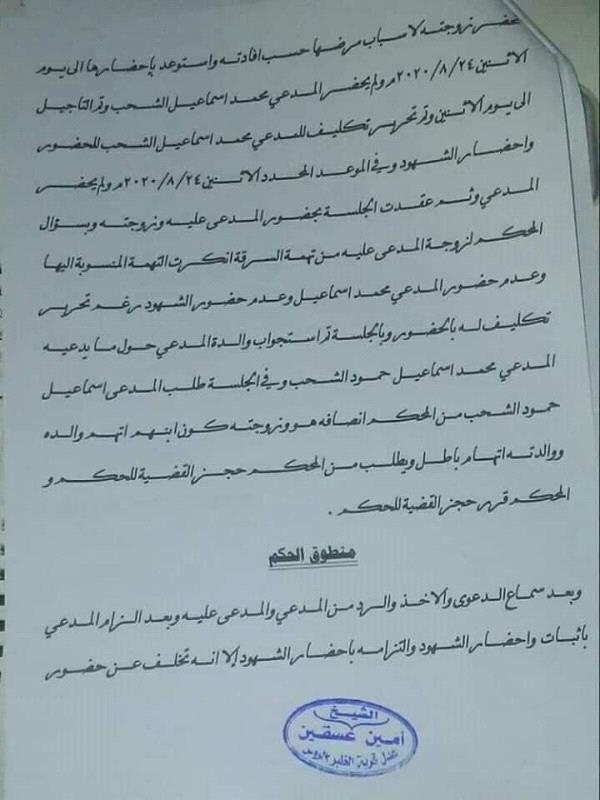 يحضر زوجته لاسباب مرضها حسب افادته واستوعد بإحضارها الى يوم
الاثنين ٢٠٢٠/٨/٢٤م ولم يحضر المدعي محمد اسماعيل الشحب وتم التاجيل
الى يوم الاثنين وتم تحرير تكليف للمدعي محمد اسماعيل الشحب للحضور
واحضار الشهود وفي الموعد المحدد الاثنين ٢٠٢٠/٨/٢٤م ولم يحضر
المدعي وثم عقدت الجلسة بحضور المدعى عليه وزوجته وبسؤال
المحكم لزوجة المدعى عليه من تهمة السرقة انكرت التهمة المنسوبة اليها
وعدم حضور المدعي محمد اسماعيل وعدم حضور الشهود رغم تحرير
تكليف له بالحضور وبالجلسة تم استجواب والدة المدعي حول ما يدعيه
المدعي محمد اسماعيل حمود الشحب وفي الجلسة طلب المدعى اسماعيل
حمود الشحب من المحكم انصافه هو وزوجته كون ابنهم اتهم والده
ووالدته اتهام باطل ويطلب من المحكم حجز القضية للحكم و
المحكم قرر حجز القضية للحكم .
منطوق الحكم
وبعد سماع الدعوى والاخذ والرد من المدعي والمدعى عليه وبعد الزام المدعي
باثبات واحضار الشهود والتزامه باحضار الشهود إلا انه تخلف عن حضور
الشيخ
أمين عسقين
قرية